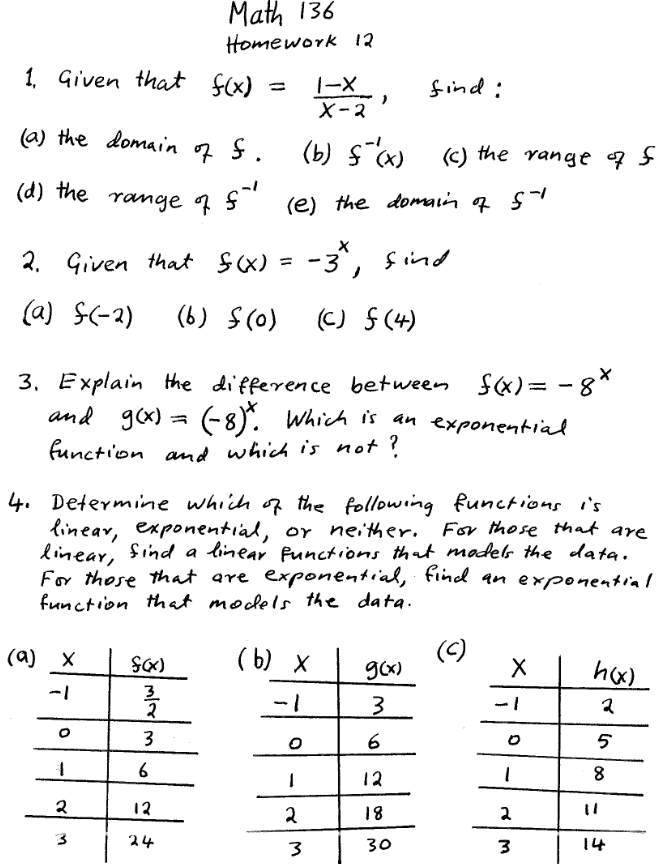 Math 136
Homework 12
1. Given that f(x) = (1-x)/(x-2), find:
(a) the domain of f. (b) f⁻¹(x) (c) the range of f
(d) the range of f⁻¹ (e) the domain of f⁻¹
2. Given that f(x) = -3ˣ, find
(a) f(-2) (b) f(0) (c) f(4)
3. Explain the difference between f(x) = -8ˣ
and g(x) = (-8)ˣ. Which is an exponential
function and which is not?
4. Determine which of the following functions is
linear, exponential, or neither. For those that are
linear, find a linear functions that models the data.
For those that are exponential, find an exponential
function that models the data.
(a) x f(x) (b) x g(x) (c) x h(x)
-1 3/2 -1 3 -1 2
0 3 0 6 0 5
1 6 1 12 1 8
2 12 2 18 2 11
3 24 3 30 3 14